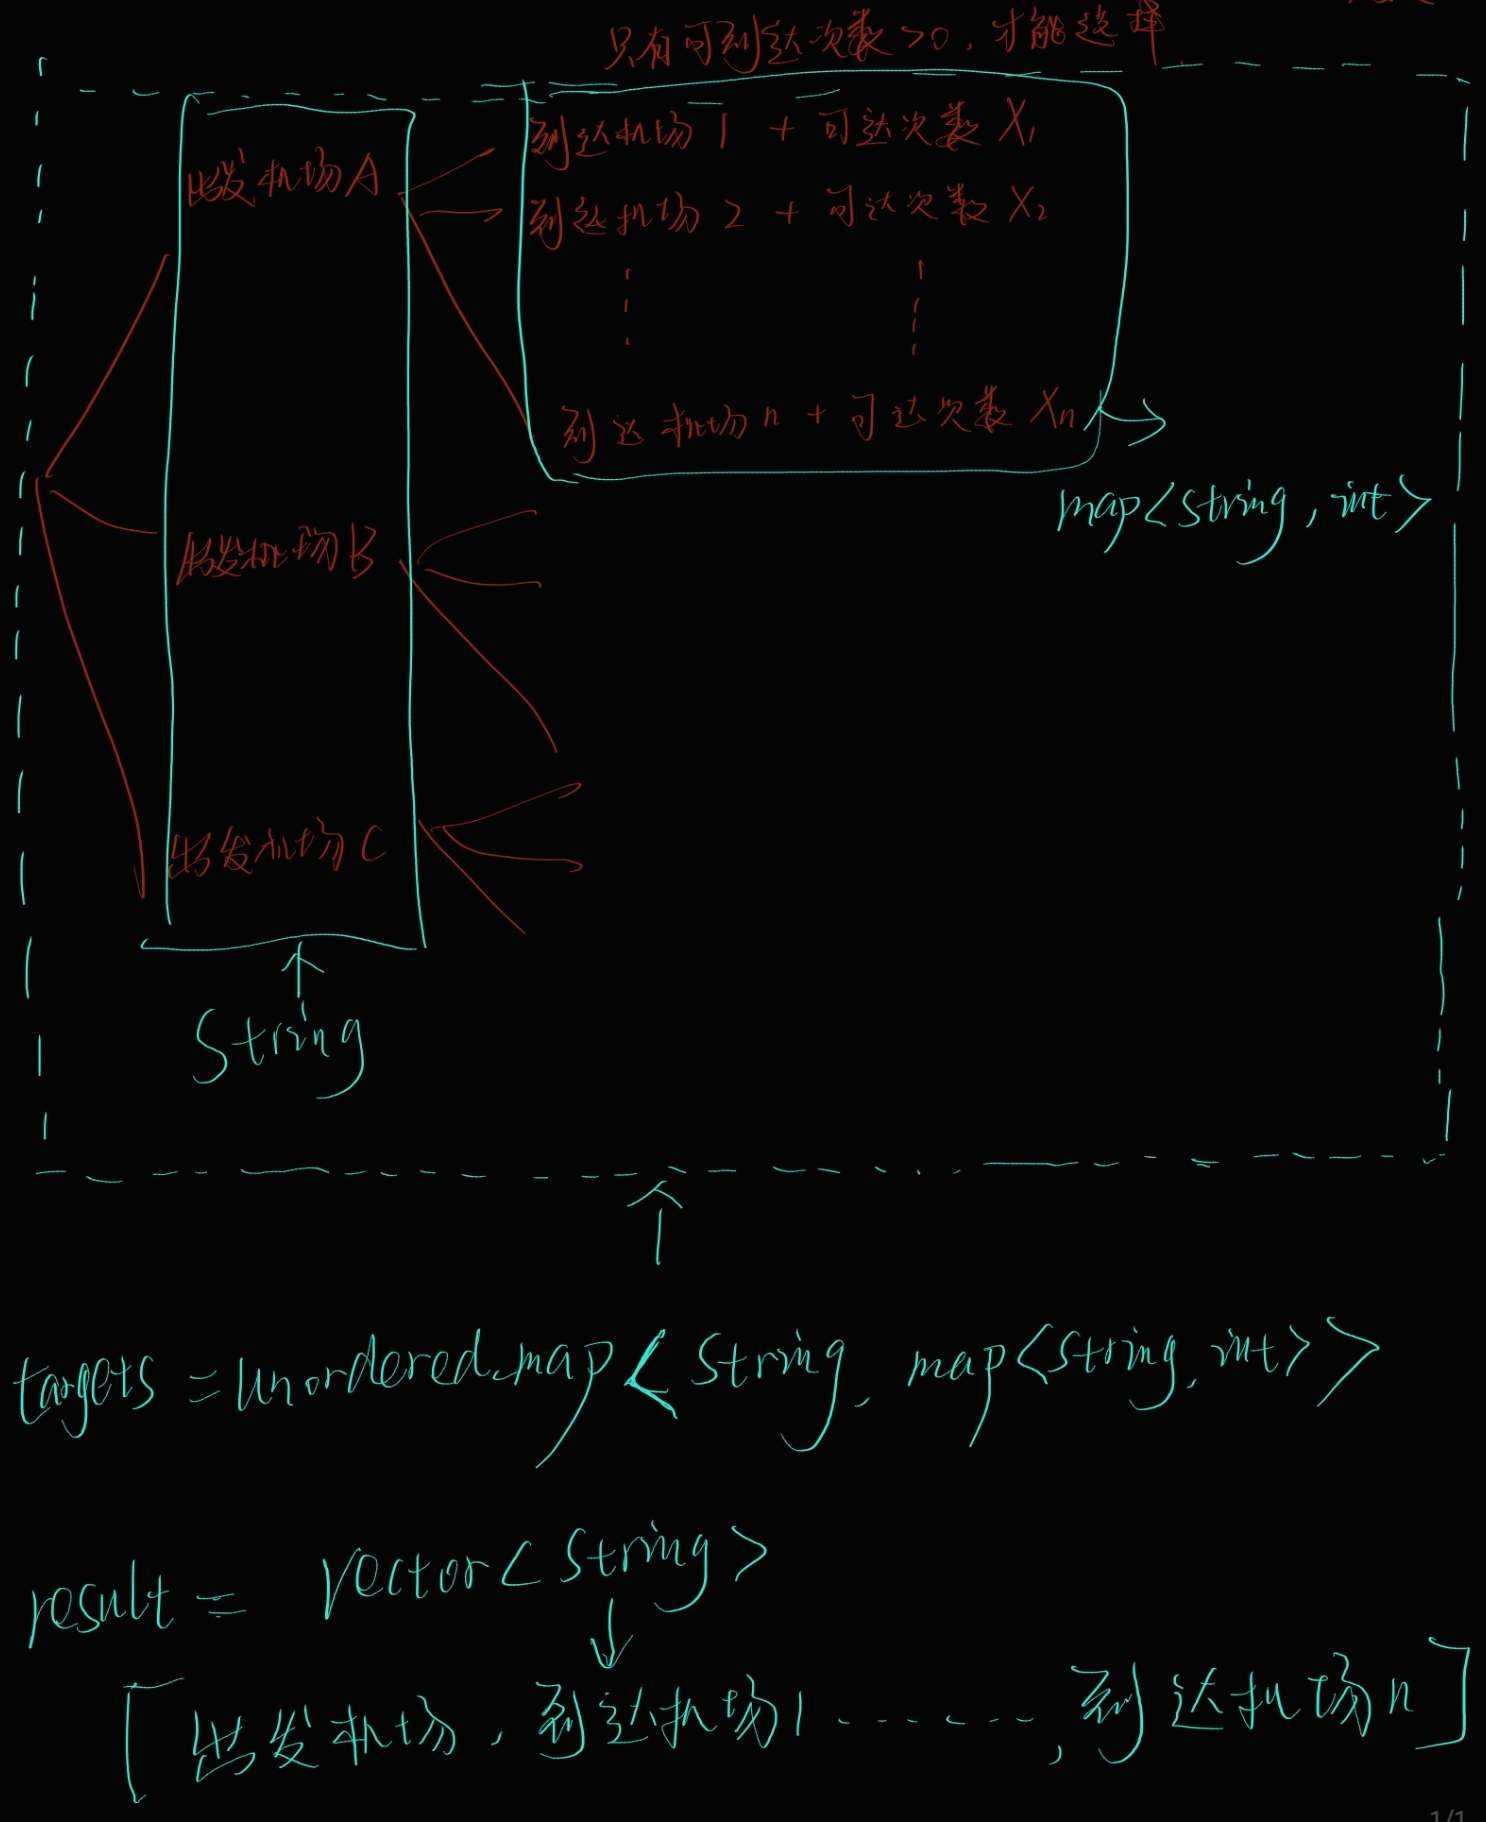 只有可到达次数>0，才能选择
到达机场1 + 可达次数 X₁
出发机场A
到达机场2 + 可达次数 X₂
到达机场n + 可达次数 Xn
map<string, int>
出发机场B
出发机场C
String
targets = unordered_map<String, map<String, int>>
result = vector<String>
[出发机场, 到达机场1 ------, 到达机场n]
1/1